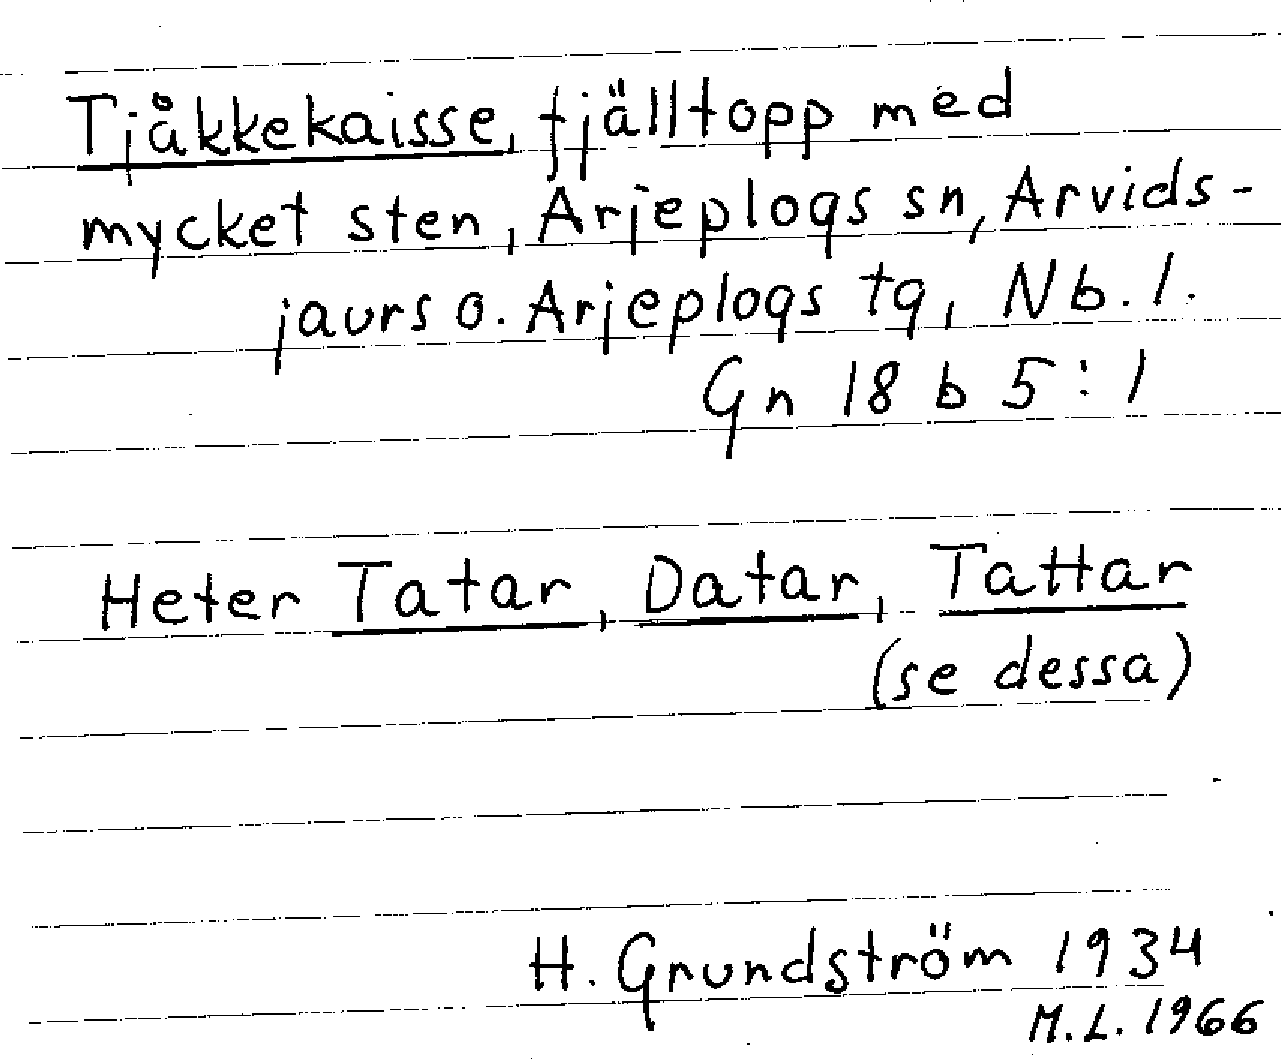 Tjåkkekaisse, fjälltopp med
mycket sten, Arjeplogs sn, Arvids-
jaurs o. Arjeplogs tg, Nb. l.
Gn 18 b 5:1
Heter Tatar, Datar, Tattar
(se dessa)
H. Grundström 1934
M.L. 1966